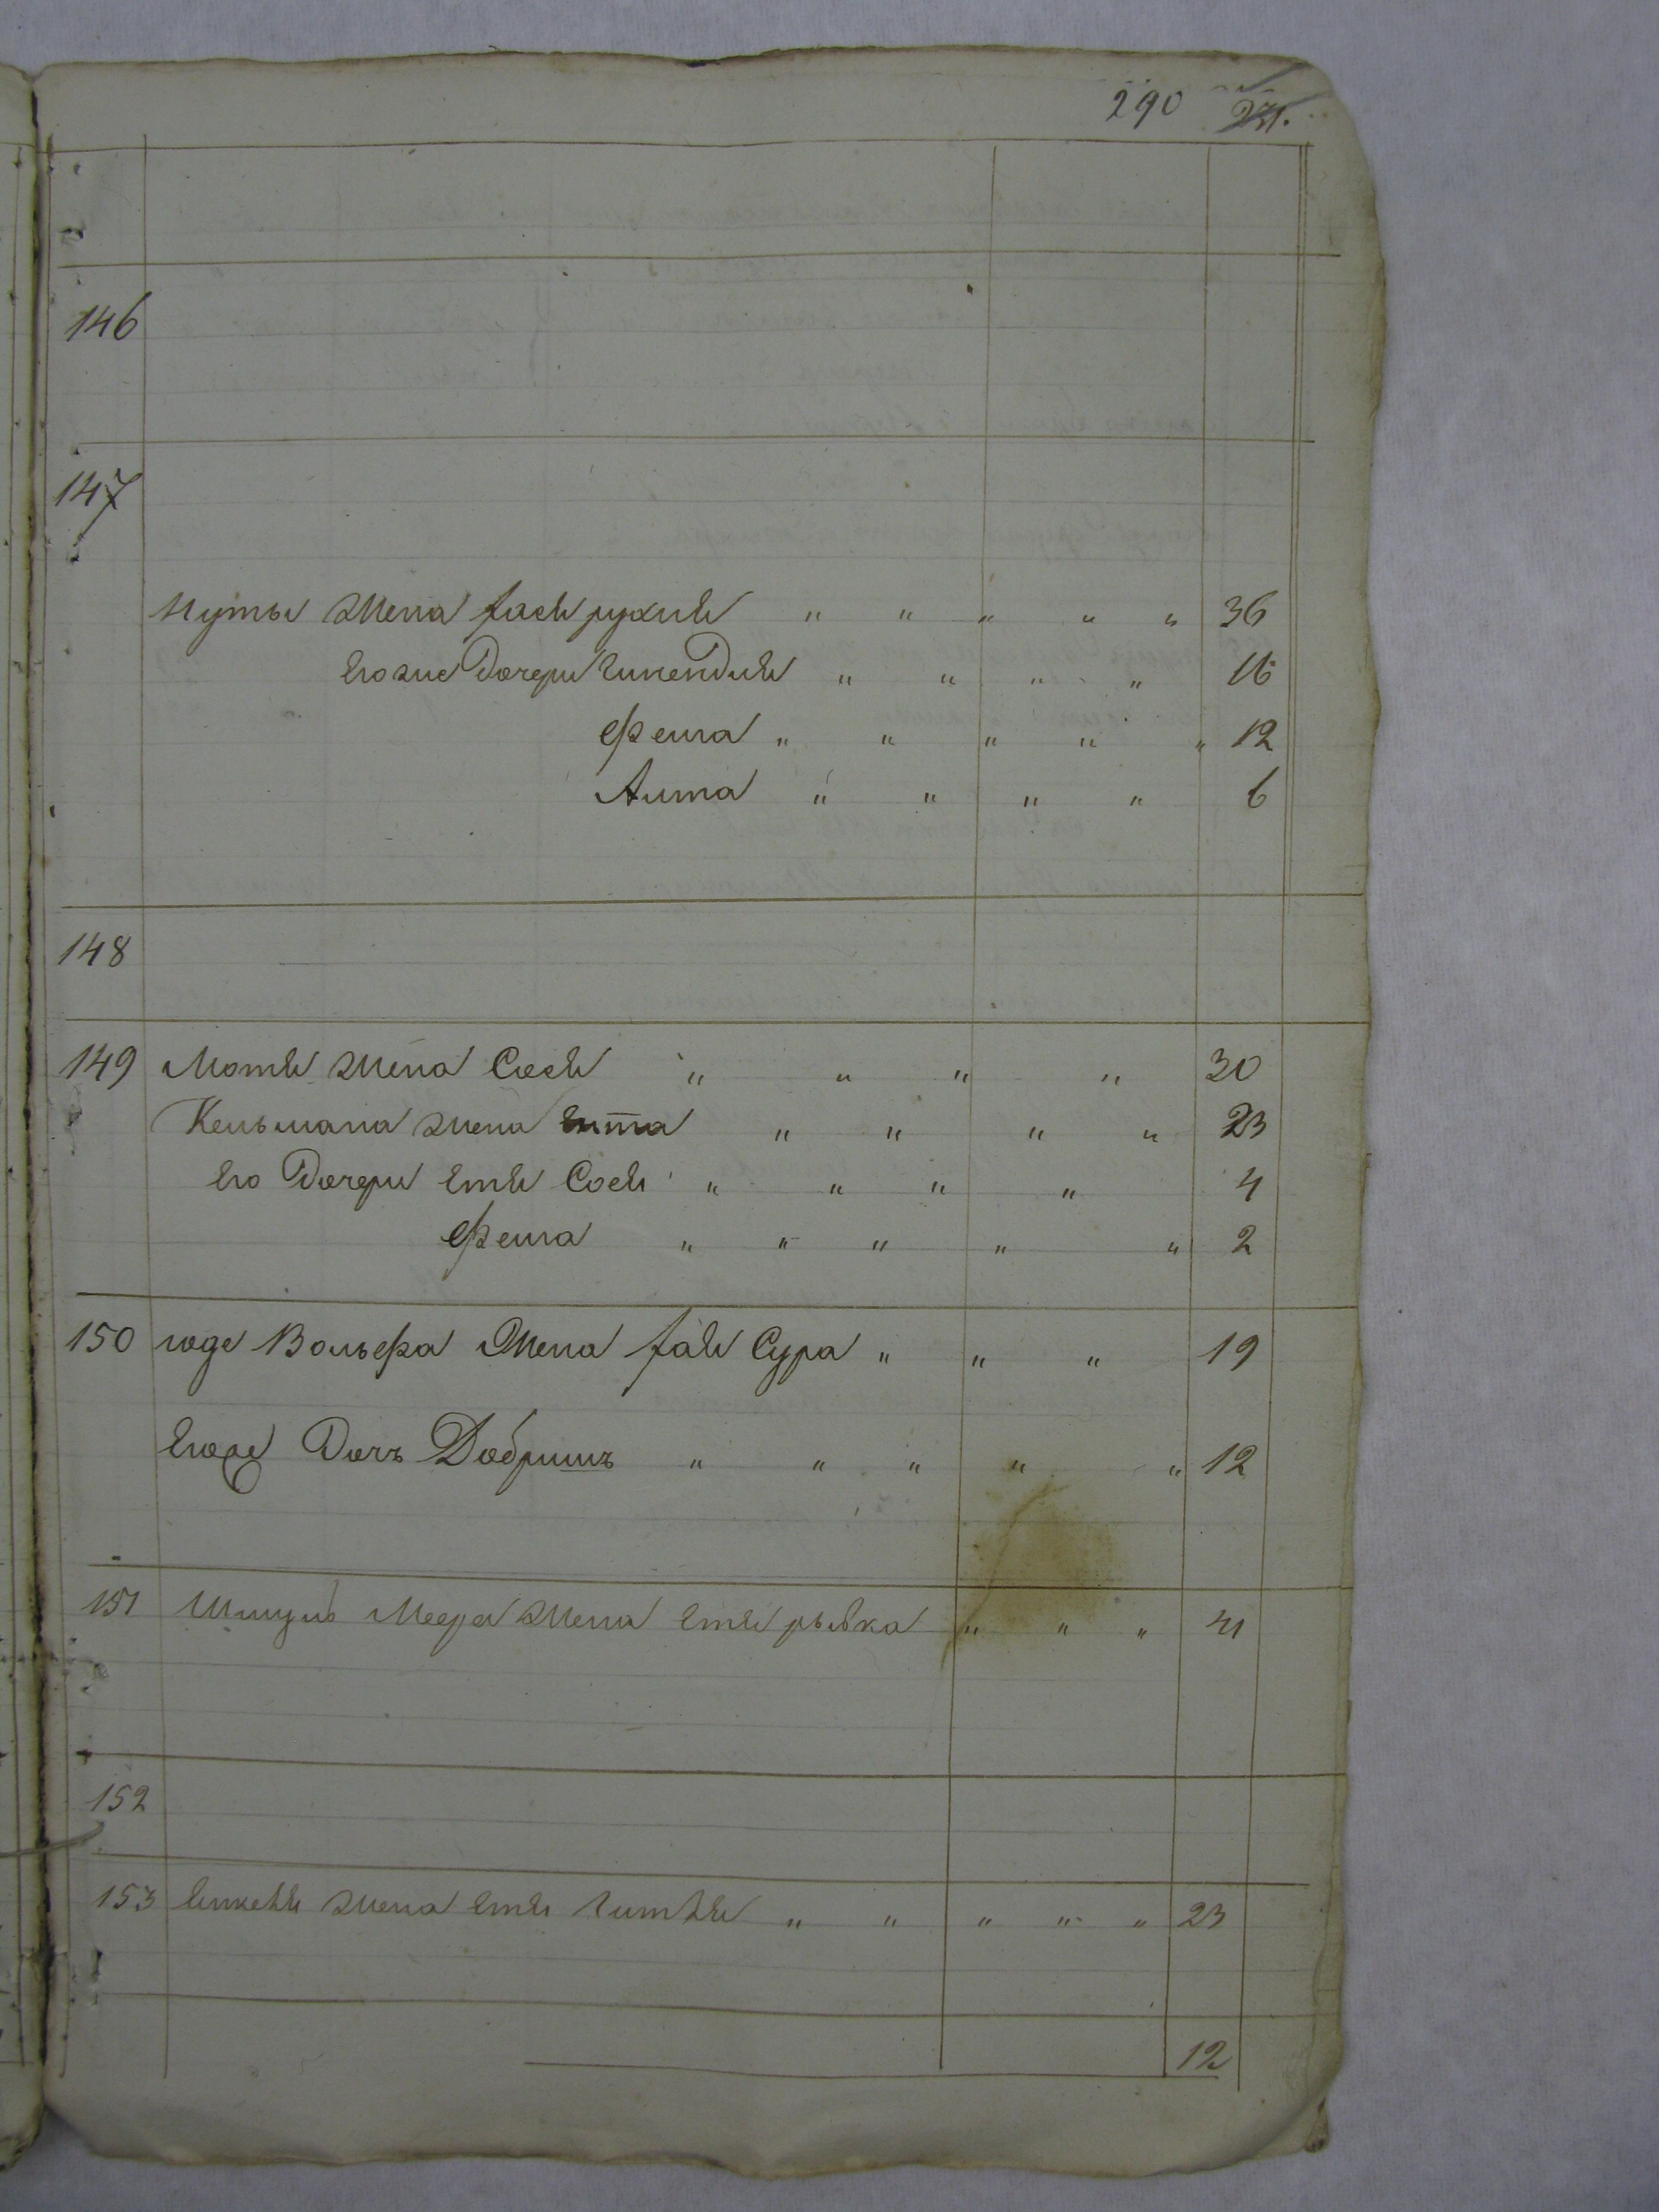 290 231.
146
147
Нуты жена Хасе рухле " " " " " 36
Его же Дочери Гинендле " " " " 16
Фейга " " " " " 12
Аита " " " " 6
148
149 Моте жена Сосе " " " " 30
Кельмана жена Гитта " " " " 23
Его Дочери Ете Сосе " " " " 4
Фейга " " " " " 2
150 Вольфа Жена Хае Сура " " " 19
Егоже Дочь Добришъ " " " " " 12
151 Шмуль Меера жена Ете рывка " " " 41
152
153 жена Ете " " " " " 23
12